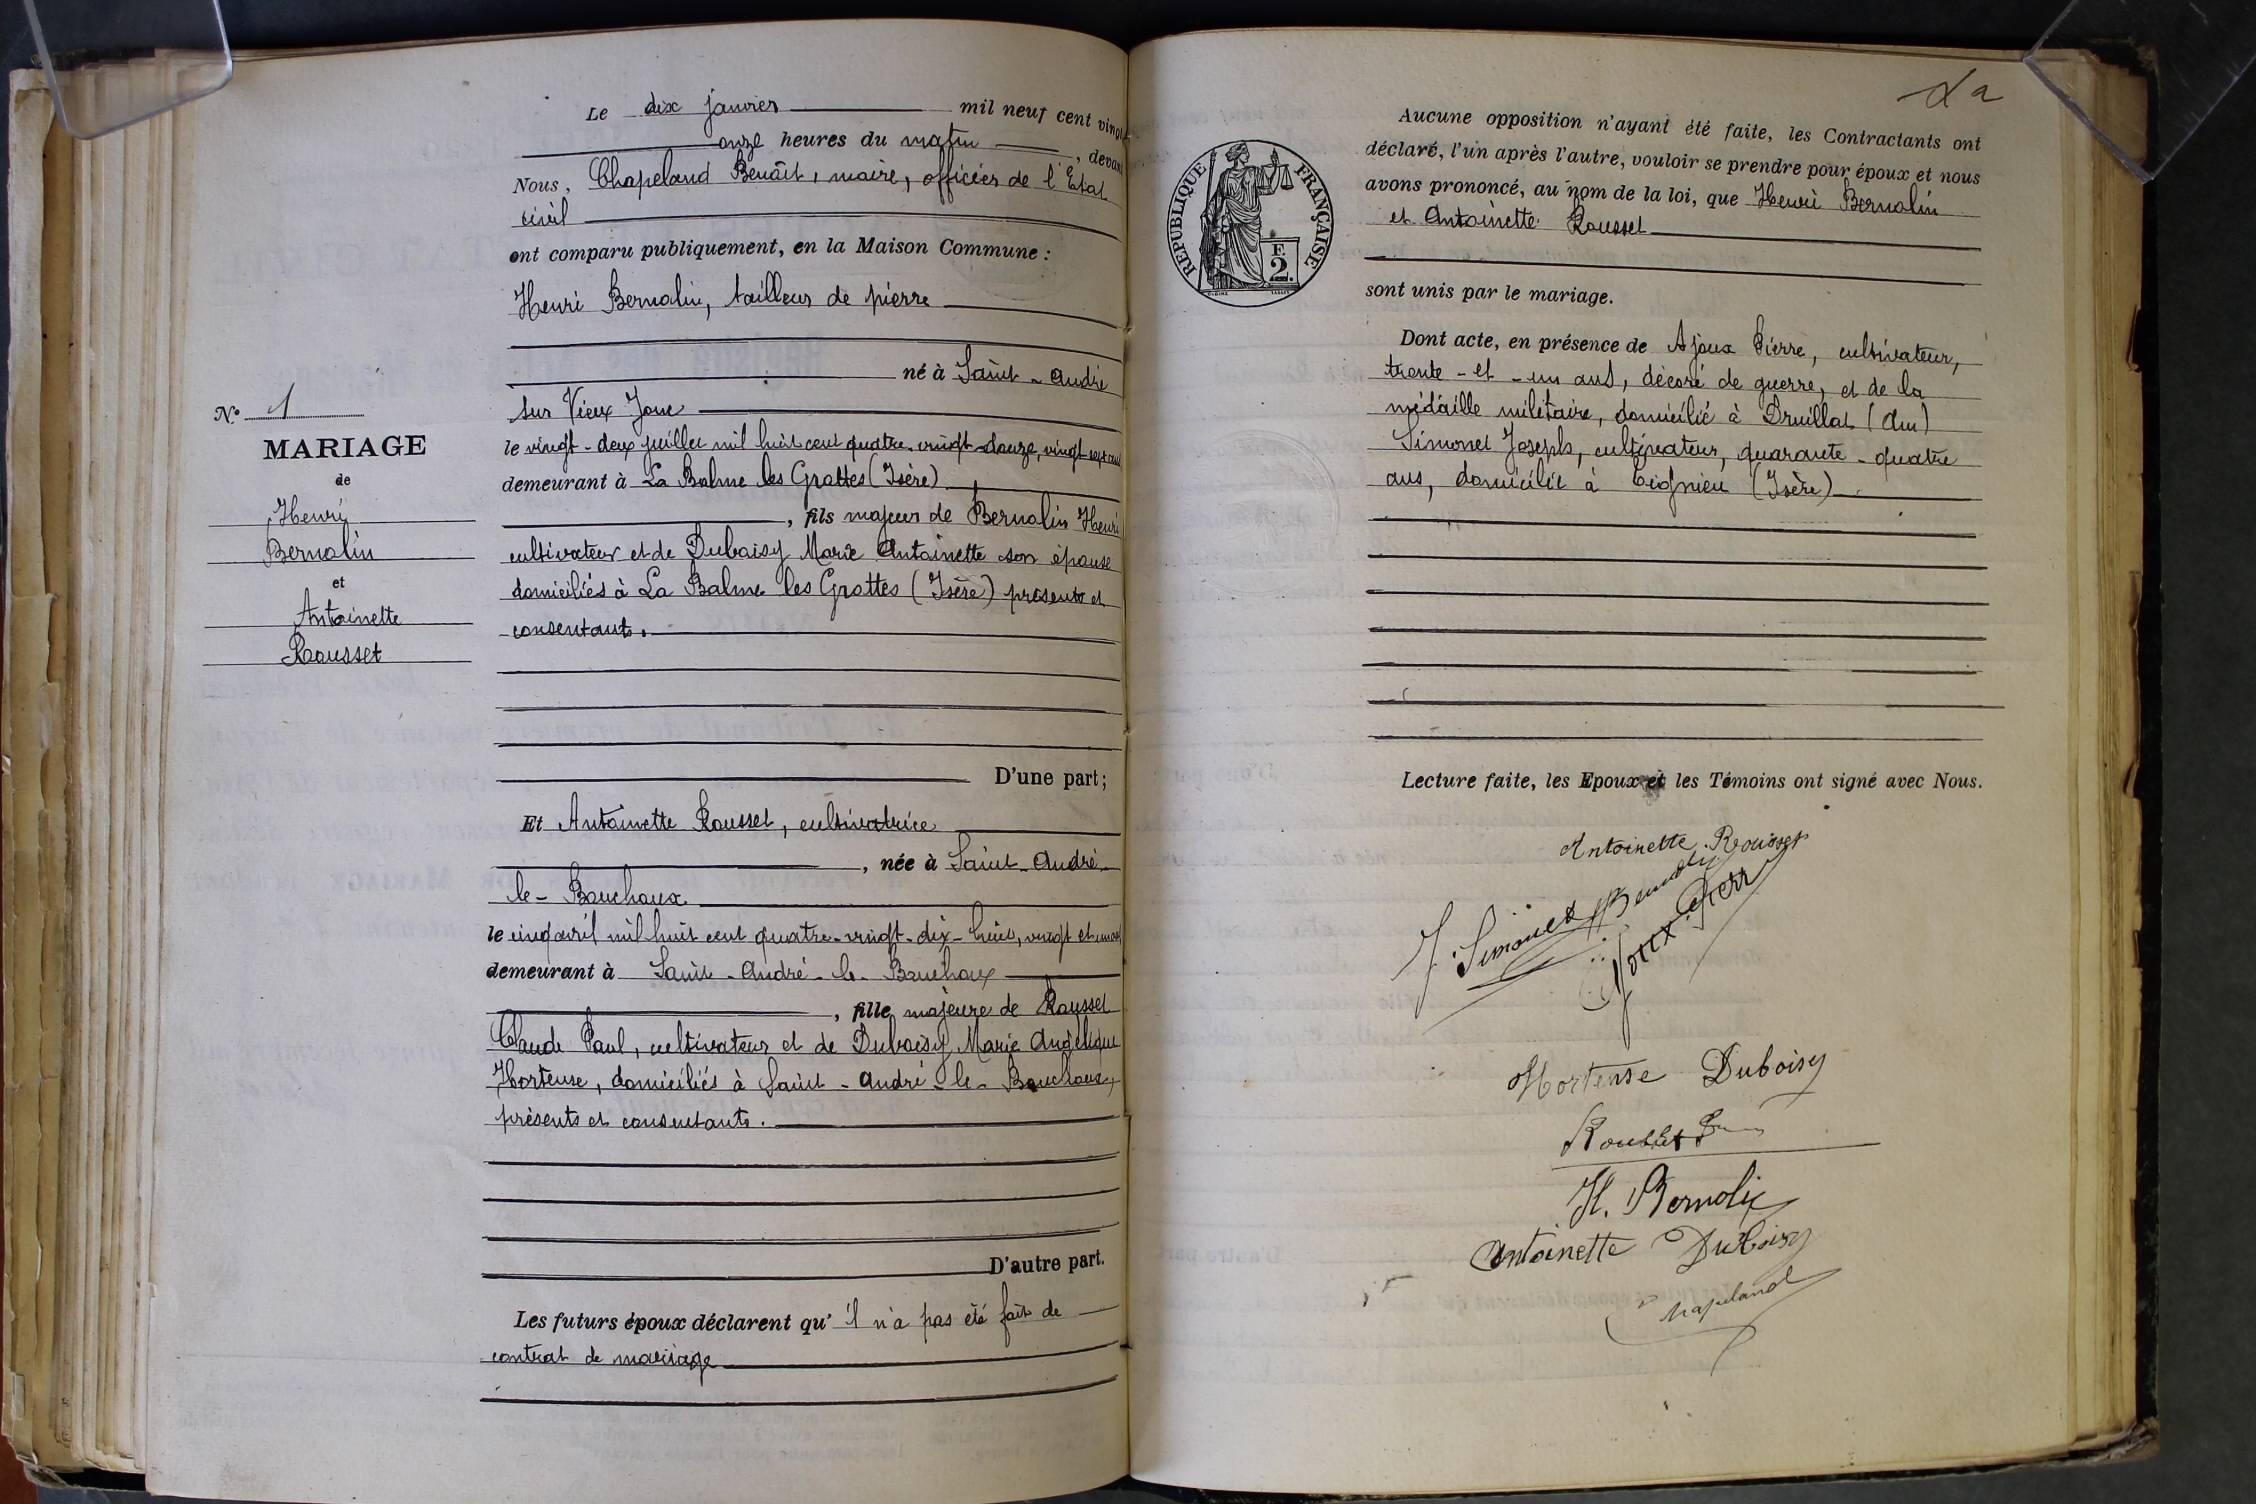 Le dix janvier mil neuf cent vingt
onze heures du matin, devant
Nous, Chapeland Benôit, maire, officier de l'Etat
civil
ont comparu publiquement, en la Maison Commune :
Henri Bernolin, tailleur de pierre
né à Saint-André
sur Vieux Jonc
le vingt-deux juillet mil huit cent quatre-vingt-douze, vingt sept ans
demeurant à La Balme les Grottes (Isère)
, fils majeur de Bernolin Henri
cultivateur et de Duboisy Marie Antoinette son épouse
domiciliés à La Balme les Grottes (Isère) présents et
consentants.
D'une part;
Nº 1
MARIAGE
de
Henri
Bernolin
et
Antoinette
Rousset
Et Antoinette Rousset, cultivatrice
, née à Saint-André-
le-Bouchoux
le cinq avril mil huit cent quatre-vingt-dix-huit, vingt et un ans
demeurant à Saint-André-le-Bouchoux
, fille majeure de Rousset
Claude Paul, cultivateur et de Duboisy Marie Angélique
Hortense, domiciliés à Saint-André-le-Bouchoux,
présents et consentants.
D'autre part.
Les futurs époux déclarent qu'il n'a pas été fait de
contrat de mariage
Aucune opposition n'ayant été faite, les Contractants ont
déclaré, l'un après l'autre, vouloir se prendre pour époux et nous
avons prononcé, au nom de la loi, que Henri Bernolin
et Antoinette Rousset
sont unis par le mariage.
RÉPUBLIQUE FRANÇAISE
F.
2.
Dont acte, en présence de Ajoux Pierre, cultivateur,
trente-et-un ans, décoré de guerre, et de la
médaille militaire, domicilié à Druillat (Ain)
Simonet Joseph, cultivateur, quarante-quatre
ans, domicilié à Tignieu (Isère)
Lecture faite, les Epoux et les Témoins ont signé avec Nous.
Antoinette Rousset
J. Simonet H Bernolin
Ajoux Pierre
Hortense Duboisy
Rousset
H. Bernolin
Antoinette Duboisy
Chapeland